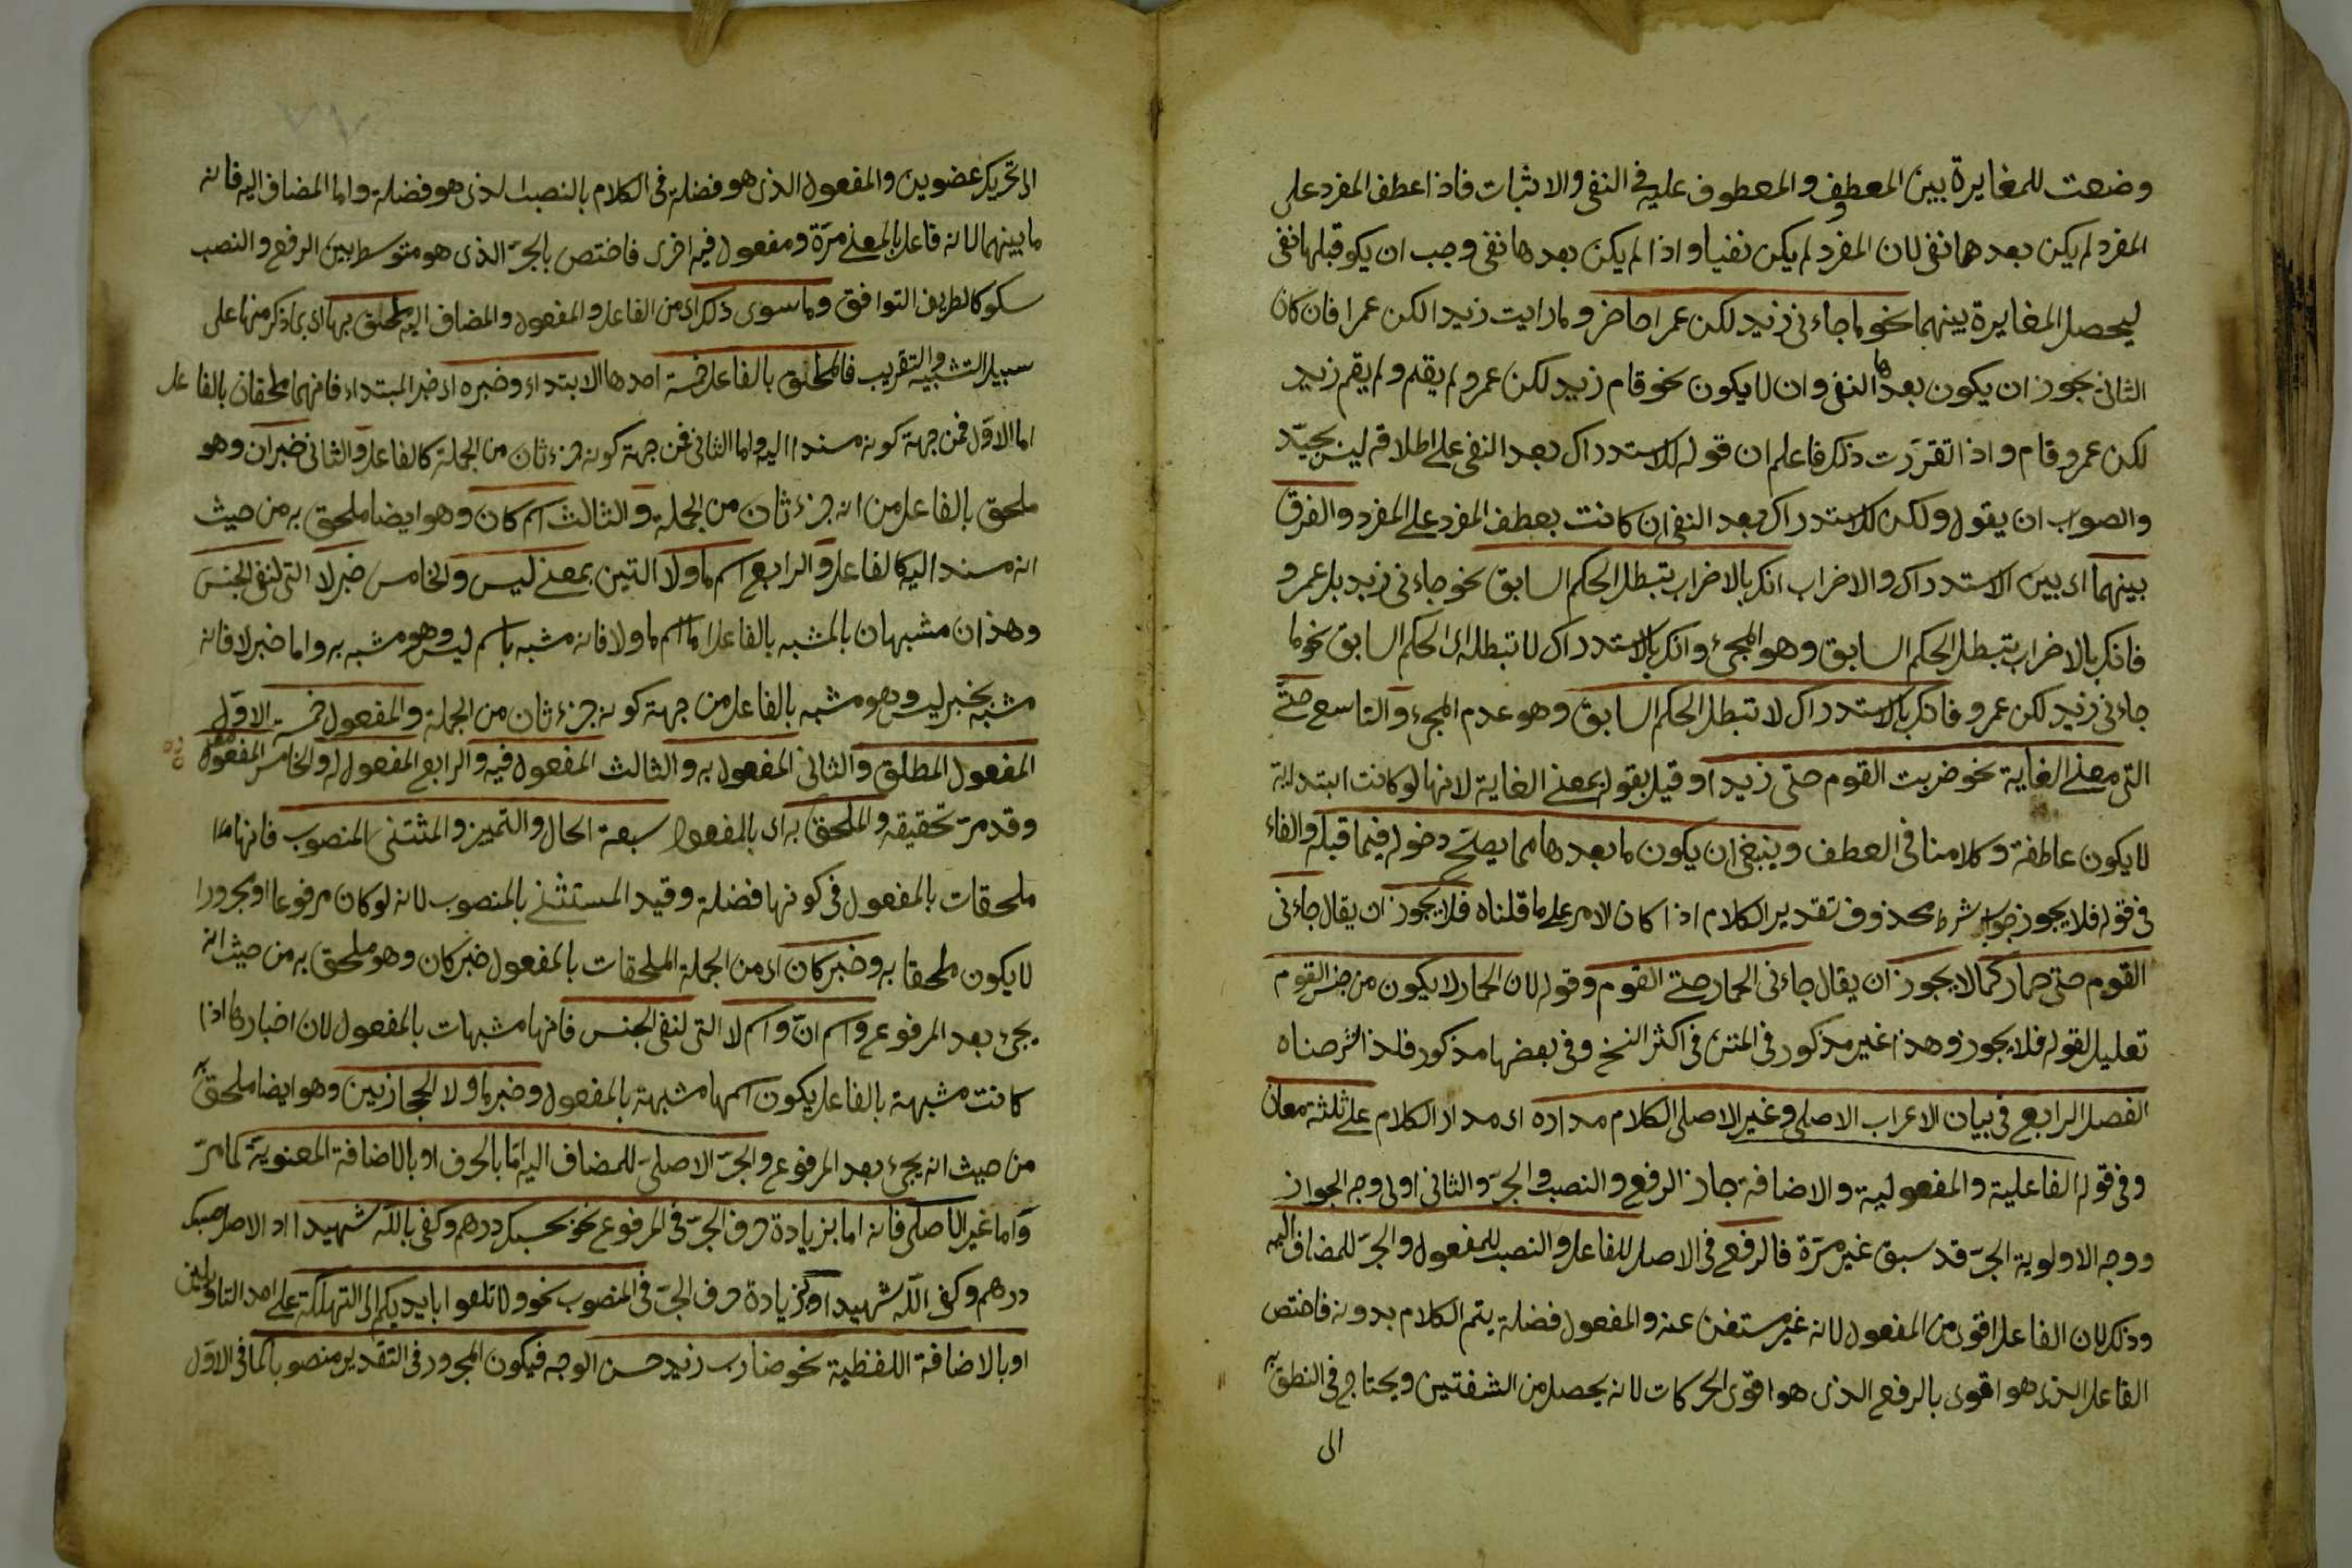 وضعت للمغايرة بين المعطوف و المعطوف عليه فى النفى والاثبات فاذا عطف المفرد على
المفرد لم يكن بعدها نفى لان المفرد لم يكن نفيا و اذا لم يكن بعدها نفى وجب ان يكو قبلها نفى
ليحصل المغايرة بينهما نحو ما جاءنى زيد لكن عمرا حاضر و ما رايت زيدا لكن عمرا فان كان
الثانى يجوز ان يكون بعدها النفى وان لا يكون نحو قام زيد لكن عمرو لم يقم و لم يقم زيد
لكن عمرو قام و اذا تقررت ذلك فاعلم ان قوله للاستدراك بعد النفى على اطلاقه ليس بجيّد
والصواب ان يقول ولكن للاستدراك بعد النفى ان كانت بعطف المفرد على المفرد و الفرق
بينهما اى بين الاستدراك والاضراب انك بالاضراب تبطل الحكم السابق نحو جاءنى زيد بل عمرو
فانك بالاضراب تبطل الحكم السابق وهو المجئ وانك بالاستدراك لا تبطله اى الحكم السابق نحو ما
جاءنى زيد لكن عمرو فانك بالاستدراك لا تبطل الحكم السابق وهو عدم المجئ و التاسع حتّى
التى معنى الغاية نحو ضربت القوم حتى زيدا و قيل بقوله بمعنى الغاية لانها لو كانت ابتدائية
لا يكون عاطفة وكلامنا فى العطف وينبغى ان يكون ما بعدها مما يصلح دخوله فيما قبله والفاء
فى قوله فلا يجوز جواب شرط محذوف تقدير الكلام اذا كان الامر على ما قلناه فلا يجوز ان يقال جاءنى
القوم حتى حمار كما لا يجوز ان يقال جاءنى الحمار حتى القوم و قوله لان الحمار لا يكون من جنس القوم
تعليل لقوله فلا يجوز وهذا غير مذكور فى المتن فى اكثر النسخ وفى بعضها مذكور فلذا
الفصل الرابع فى بيان الاعراب الاصلى وغير الاصلى الكلام مداره اى مدار الكلام على ثلثة معان
وفى قوله الفاعلية و المفعولية والاضافة جاز الرفع و النصب و الجرّ و الثانى اولى وجه الجواز
ووجه الاولوية الجرّ قد سبق غير مرّة فالرفع فى الاصل للفاعل والنصب للمفعول و الجرّ للمضاف اليه
وذلك لان الفاعل اقوى من المفعول لانه غير مستغن عنه والمفعول فضلة يتم الكلام بدونه فاختص
الفاعل الذى هو اقوى بالرفع الذى هو اقوى الحركات لانه يحصل من الشفتين ويحتاج فى النطق به
الى
الى تحريك عضوين و المفعول الذى هو فضلة فى الكلام بالنصب الذى هو فضلة و اما المضاف اليه فانه
ما بينهما لانه فاعل بالمعنى مرّة و مفعول فيه اخرى فاختص بالجرّ الذى هو متوسط بين الرفع و النصب
سلوكا لطريق التوافق وما سوى ذلك اى من الفاعل و المفعول و المضاف اليه ملحق بها اى بما ذكر منها على
سبيل التشبيه والتقريب فالملحق بالفاعل خمسة احدها الابتداء وخبره اى خبر المبتداء فانهما ملحقان بالفاعل
اما الاوّل فمن جهة كونه مسندا اليه واما الثانى فمن جهة كونه جزء ثان من الجملة كالفاعل و الثانى خبر ان وهو
ملحق بالفاعل من انه جزء ثان من الجملة و الثالث اسم كان وهو ايضا ملحق به من حيث
انه مسند اليه كالفاعل و الرابع اسم ما ولا التين بمعنى ليس والخامس خبر لا التى لنفى الجنس
وهذان مشبهان بالمشبه بالفاعل اما اسم ما ولا فانه مشبه باسم ليس وهو مشبه به واما خبر لا فانه
مشبه بخبر ليس وهو مشبه بالفاعل من جهة كونه جزء ثان من الجملة و المفعول خمسة الاوّل
المفعول المطلق و الثانى المفعول به و الثالث المفعول فيه و الرابع المفعول له والخامس المفعول معه
وقد مرّ تحقيقه و الملحق به اى بالمفعول سبعة الحال و التميز و المثتنى المنصوب فانها
ملحقات بالمفعول فى كونها فضلة و قيد المستثنى بالمنصوب لانه لو كان مرفوعا او مجرورا
لا يكون ملحقا به و خبر كان اى من الجملة الملحقات بالمفعول خبر كان وهو ملحق به من حيث انه
يجئ بعد المرفوع و اسم انّ و اسم لا التى لنفى الجنس فانها مشبهات بالمفعول لان اخبارها اذا
كانت مشبهة بالفاعل يكون اسمها مشبهة بالمفعول و خبر ما ولا الحجازيين وهو ايضا ملحق به
من حيث انه يجئ بعد المرفوع و الجرّ الاصلىّ للمضاف اليه امّا بالحرف او بالاضافة المعنوية كما مرّ
وامّا غير الاصلى فانه اما بزيادة حرف الجرّ فى المرفوع نحو بحسبك درهم وكفى بالله شهيدا اذ الاصل حسبك
درهم وكفى الله شهيدا او بزيادة حرف الجرّ فى المنصوب نحو ولا تلقوا بايديكم الى التهلكة على احد التاويلين
او بالاضافة اللفظية نحو ضارب زيد حسن الوجه فيكون المجرور فى التقدير منصوبا كما فى الاوّل